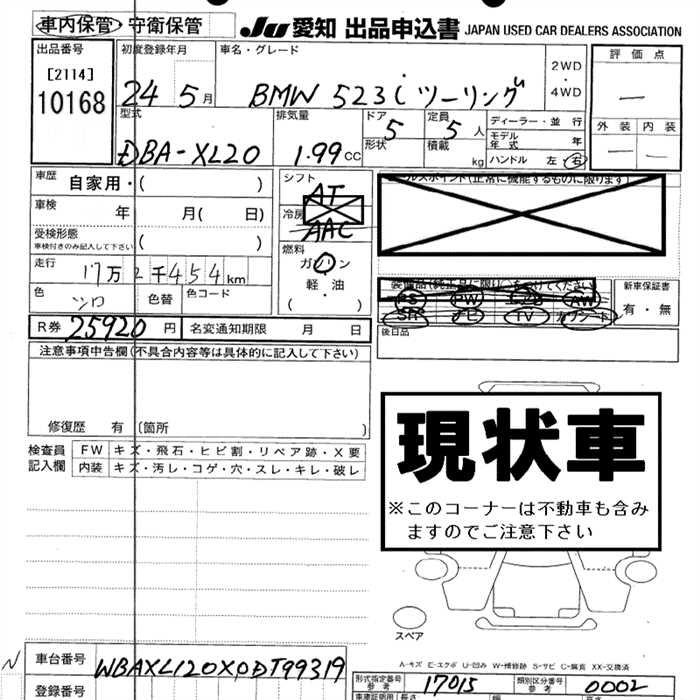 車内保管 守衛保管 JU 愛知 出品申込書 JAPAN USED CAR DEALERS ASSOCIATION
出品番号 初度登録年月 車名・グレード 評価点
[2114] 2WD
10168 24年5月 BMW 523i ツーリング ・ 4WD —
型式 排気量 ドア 定員 ディーラー・並行 外装 内装
DBA-XL20 1.99cc 5 5人 モデル年式 年 — —
形状 積載 kg ハンドル 左 右
車歴 自家用・( ) シフト AT
車検 年 月( 日) 冷房 AAC
受検形態 車検付きのみ記入して下さい ( ) 燃料
走行 17万2千454km ガソリン
色 シロ 色替 色コード 軽・油
( ・ )
セールスポイント(正常に機能するものに限ります)
装備品(純正品に限り○をつけてください) 新車保証書
PS PW AW 有・無
SR ナビ TV カワシート
後日品
R券 25920円 名変通知期限 月 日
注意事項申告欄(不具合内容等は具体的に記入して下さい)
修復歴 有 (箇所 )
検査員記入欄 FW キズ・飛石・ヒビ割・リペア跡・X要
内装 キズ・汚レ・コゲ・穴・スレ・キレ・破レ
現状車
※このコーナーは不動車も含み
ますのでご注意下さい
スペア
A-キズ E-エクボ U-凹み W-補修跡 S-サビ C-腐食 XX-交換済
N 車台番号 WBAXL120X0DT99319 形式指定番号 参考 17015 類別区分番号 参考 0002
登録番号 車庫証明用 長さ 幅 高さ